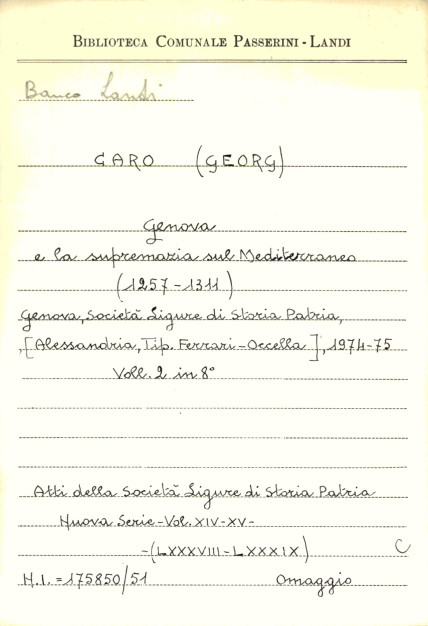 BIBLIOTECA COMUNALE PASSERINI - LANDI
Banco Landi
CARO (GEORG)
Genova
e la supremazia sul Mediterraneo
(1257-1311)
Genova, Società Ligure di Storia Patria,
,[Alessandria, Tip. Ferrari-Occella], 1974-75
Voll. 2 in 8°
Atti della Società Ligure di Storia Patria
Nuova Serie-Vol. XIV-XV-
-(LXXXVIII-LXXXIX)
C
N.I. = 175850/51 Omaggio